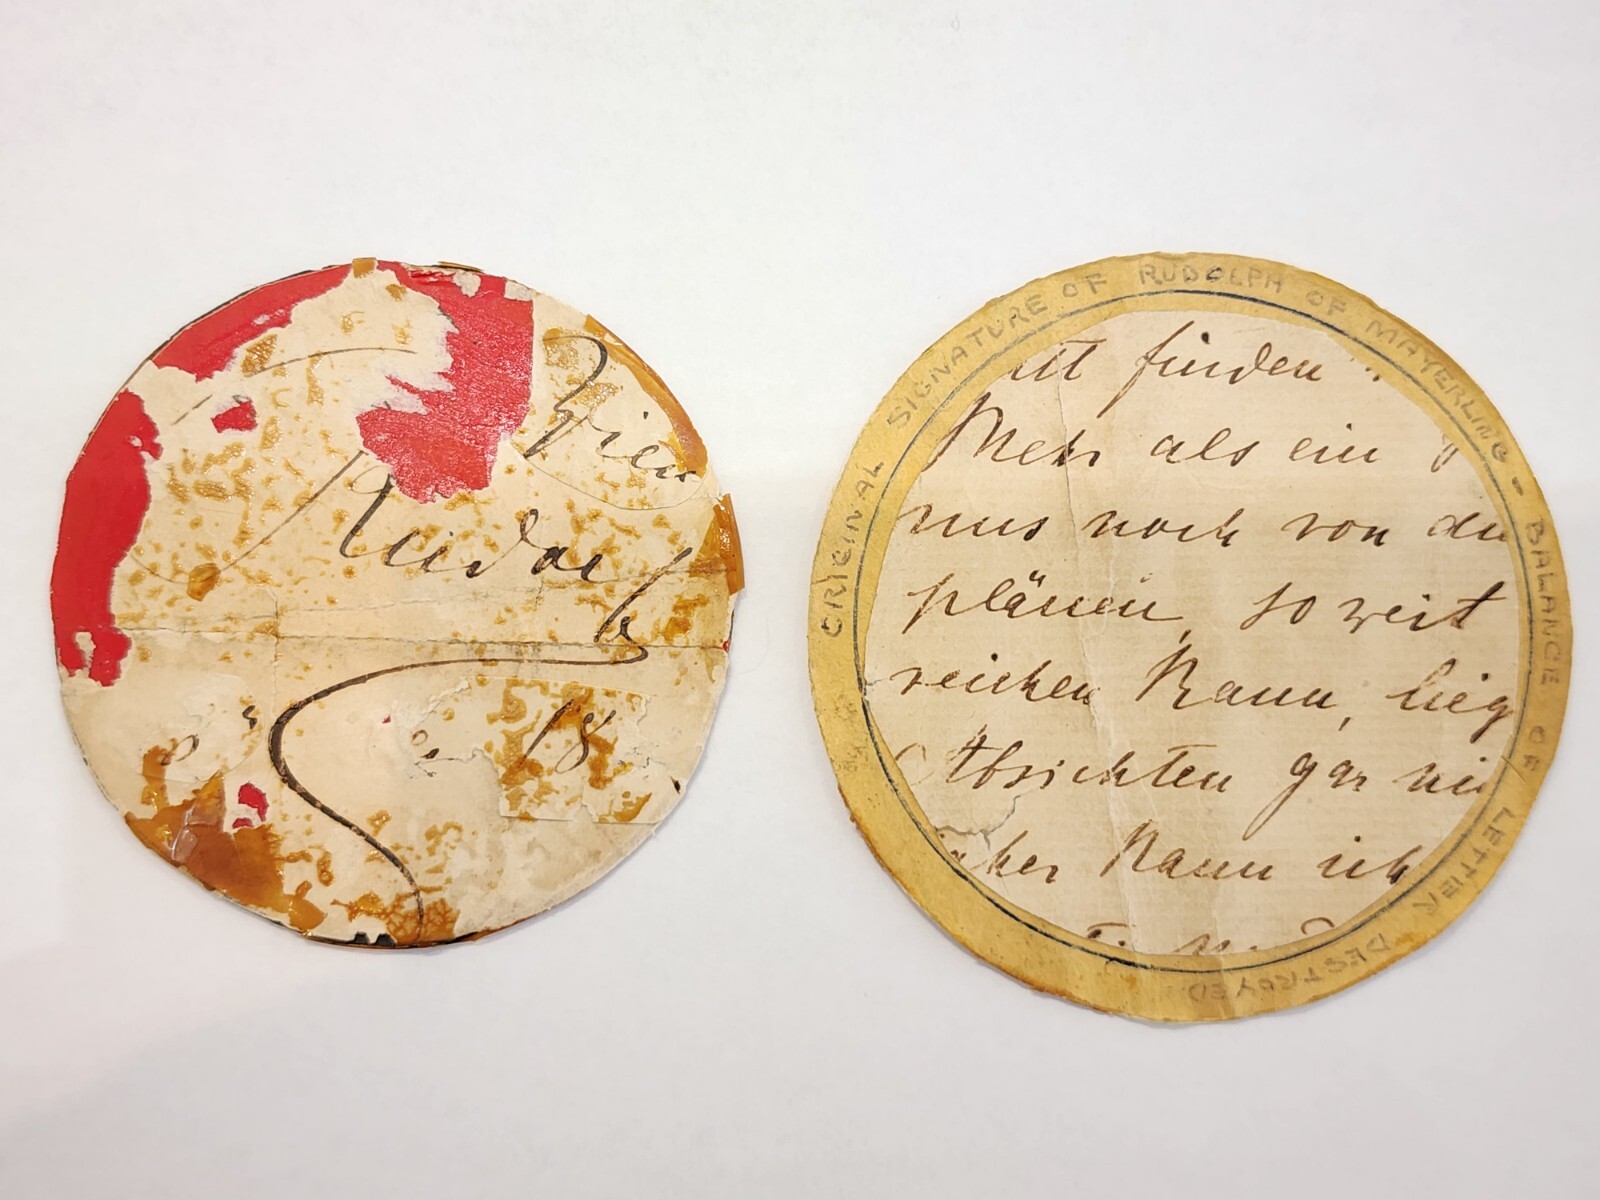 Wien
Rudolf
18
ORIGINAL SIGNATURE OF RUDOLPH OF MAYERLING - BALANCE OF LETTER DESTROYED
att finden
Mehr als ein
uns noch von den
plänen, so weit
reichen kann, lieg
Absichten gar ni
kann ich